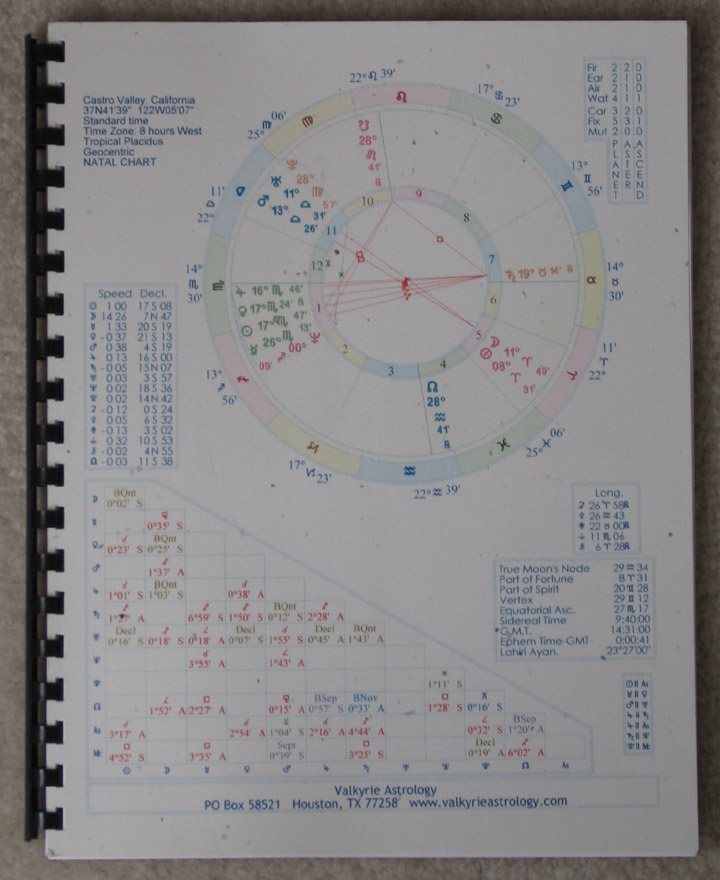 22° ♌ 39'
17° ♋ 23'
Fir 2 2 0
Ear 2 1 0
Air 2 1 0
Wat 4 1 1
Car 3 2 0
Fix 5 3 1
Mut 2 0 0
PLANET
ASTER
ASCEND
Castro Valley, California
37N41'39" 122W05'07"
Standard time
Time Zone: 8 hours West
Tropical Placidus
Geocentric
NATAL CHART
25° ♍ 06'
13° ♊ 56'
11' ♎ 22°
14° ♏ 30'
14° ♉ 30'
13° ♐ 56'
11' ♈ 22°
17° ♑ 23'
25° ♓ 06'
22° ♒ 39'
☋ 28° ♌ 41' R
28° ♍ 57'
♅ 11° ♎ 31'
♂ 13° ♎ 26'
♃ 16° ♏ 46'
♀ 17° ♏ 24' R
☉ 17° ♏ 47'
☿ 26° ♏ 13'
♆ 00° ♐ 09'
♄ 19° ♉ 14' R
☽ 11° ♈ 49'
⊗ 08° ♈ 31'
☊ 28° ♒ 41' R
1 2 3 4 5 6 7 8 9 10 11 12
Speed Decl.
☉ 1 00 17 S 08
☽ 14 26 7 N 47
☿ 1 33 20 S 19
♀ -0 37 21 S 13
♂ 0 38 4 S 19
♃ 0 13 16 S 00
♄ -0 05 15 N 07
♅ 0 03 3 S 57
♆ 0 02 18 S 36
0 02 14 N 42
⚳ -0 12 0 S 24
⚴ 0 05 6 S 32
⚵ -0 13 3 S 02
⚶ 0 32 10 S 53
⚷ -0 02 4 N 55
☊ -0 03 11 S 38
Long.
⚳ 26 ♈ 58R
⚴ 26 ♒ 43
⚵ 22 ♉ 00R
⚶ 11 ♏ 06
⚷ 6 ♈ 28R
True Moon's Node 29 ♒ 34
Part of Fortune 8 ♈ 31
Part of Spirit 20 ♊ 28
Vertex 29 ♊ 12
Equatorial Asc. 27 ♏ 17
Sidereal Time 9:40:00
G.M.T. 14:31:00
Ephem Time-GMT 0:00:41
Lahiri Ayan. 23°27'00"
BQnt
0°02' S
0°35' S
BQnt
0°23' S 0°25' S
1°37' A
BQnt
1°01' S 1°03' S 0°38' A
BQnt
1°27' A 6°59' S 1°50' S 0°12' S 2°28' A
Decl Decl Decl BQnt
0°16' S 0°18' S 0°18' A 0°07' S 1°55' S 0°45' A 1°43' A
3°55' A 1°43' A
1°11' S
BSep BNov
1°52' A 2°27' A 0°15' A 0°57' S 0°33' A 1°28' S 0°16' S
BSep
3°17' A 2°54' A 1°04' S 2°16' A 4°44' A 0°32' S 1°20' A
Sept Decl
4°52' S 3°35' A 0°39' S 3°25' S 0°19' A 6°02' A
Valkyrie Astrology
PO Box 58521 Houston, TX 77258 www.valkyrieastrology.com